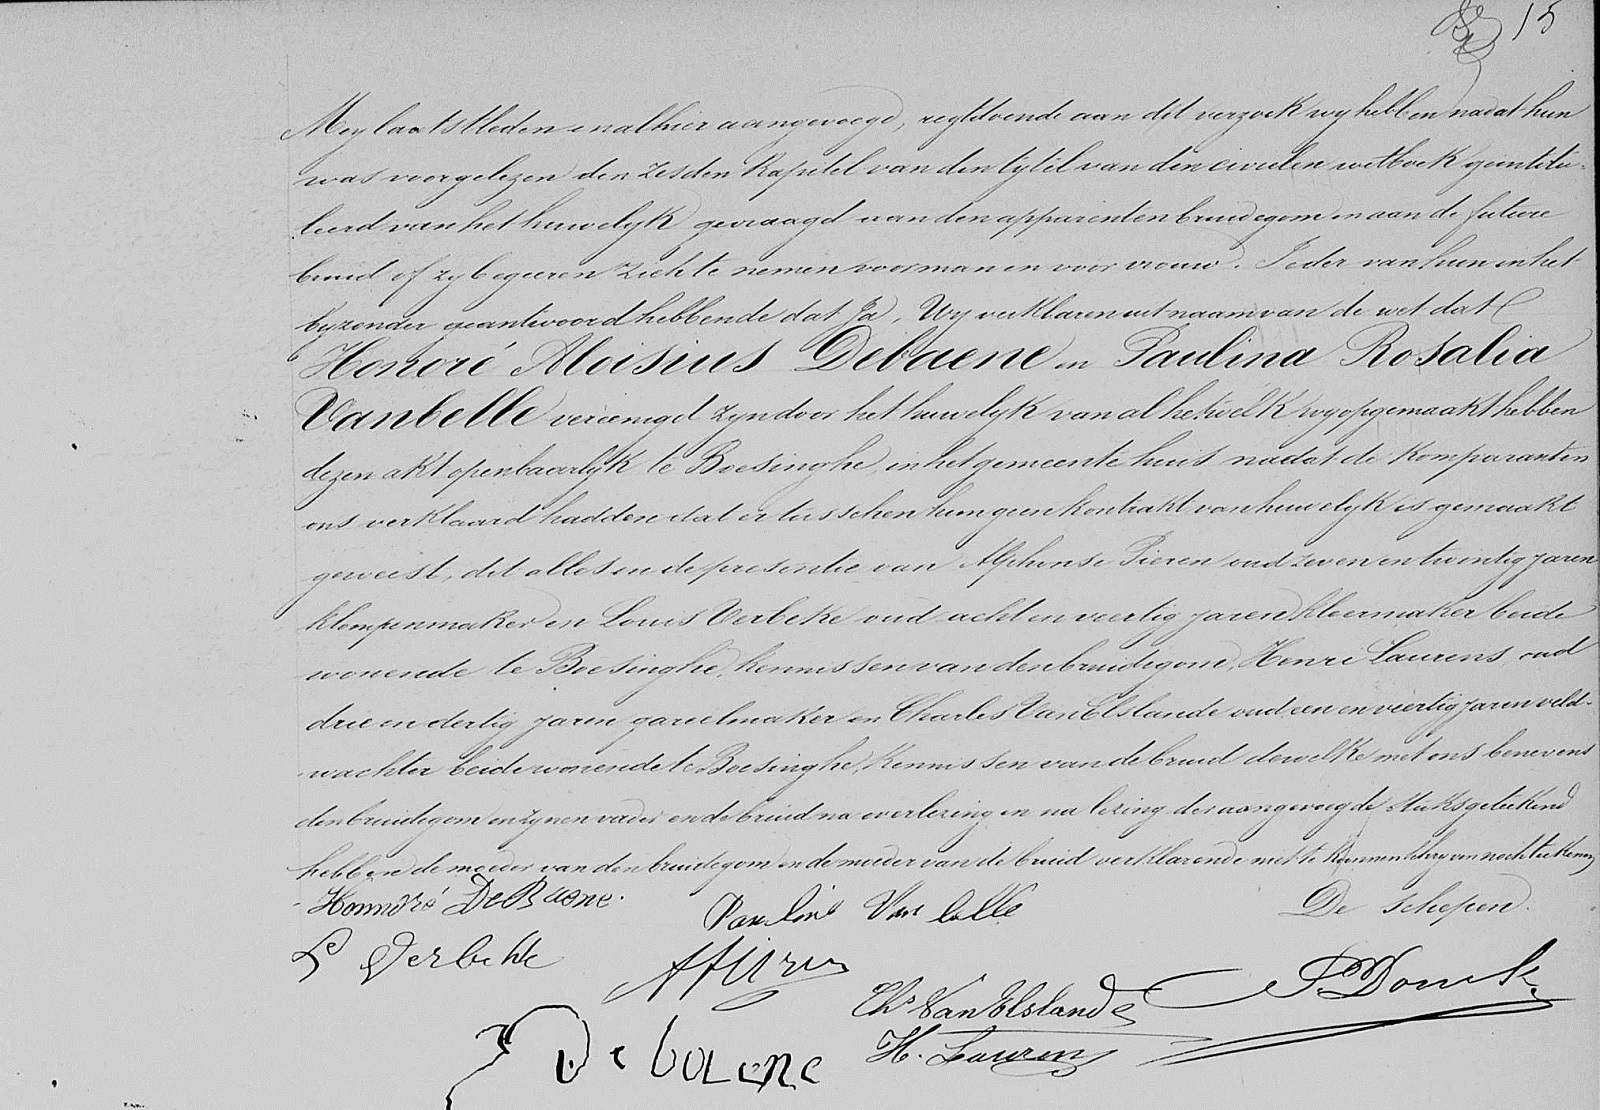 15
Mey laatstleden en alhier aangevoegd, regtdoende aan dit verzoek wy hebben nadat hun
was voorgelezen den zesden Kapitel van den tytel van den civielen wetboek geintitu-
leerd van het huwelyk gevraagd aan den apparenten bruidegom en aan de future
bruid of zy begeeren zich te nemen voor man en voor vrouw. Ieder van hun in het
byzonder geantwoord hebbende dat Ja, Wy verklaren uit naam van de wet dat
Honoré Aloisius Debaene en Paulina Rosalia
Vanbelle vereenigd zyn door het huwelyk van al hetwelk wy opgemaakt hebben
dezen akt openbaarlyk te Boesinghe, in het gemeente huis nadat de komparanten
ons verklaard hadden dat er tusschen hun geen kontrakt van huwelyk is gemaakt
geweest, dit alles in de presentie van Alphonse Pieren oud zeven en twintig jaren
klompenmaker en Louis Verbeke oud acht en veertig jaren kleermaker beide
wonende te Boesinghe, kennissen van den bruidegom, Henri Laurens oud
drie en dertig jaren gareelmaker en Charles VanElslande oud een en veertig jaren veld-
wachter beide wonende te Boesinghe, kennissen van de bruid dewelke met ons benevens
den bruidegom en zynen vader en de bruid na overlezing en na lezing der aangevoegde stuks geteekend
hebben de moeder van den bruidegom en de moeder van de bruid verklarende niet te kunnen schryven noch teekenen
Honnoré DeBaene. Pauline Van belle De schepen.
L Verbeke
Chs VanElslande P. Donck
H. Laurens
Debaene